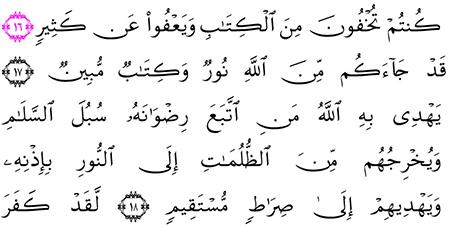 كُنتُمْ تُخْفُونَ مِنَ ٱلْكِتَٰبِ وَيَعْفُواْ عَن كَثِيرٍ ١٦
قَدْ جَآءَكُم مِّنَ ٱللَّهِ نُورٌ وَكِتَٰبٌ مُّبِينٌ ١٧
يَهْدِى بِهِ ٱللَّهُ مَنِ ٱتَّبَعَ رِضْوَٰنَهُۥ سُبُلَ ٱلسَّلَٰمِ
وَيُخْرِجُهُم مِّنَ ٱلظُّلُمَٰتِ إِلَى ٱلنُّورِ بِإِذْنِهِۦ
وَيَهْدِيهِمْ إِلَىٰ صِرَٰطٍ مُّسْتَقِيمٍ ١٨ لَّقَدْ كَفَرَ